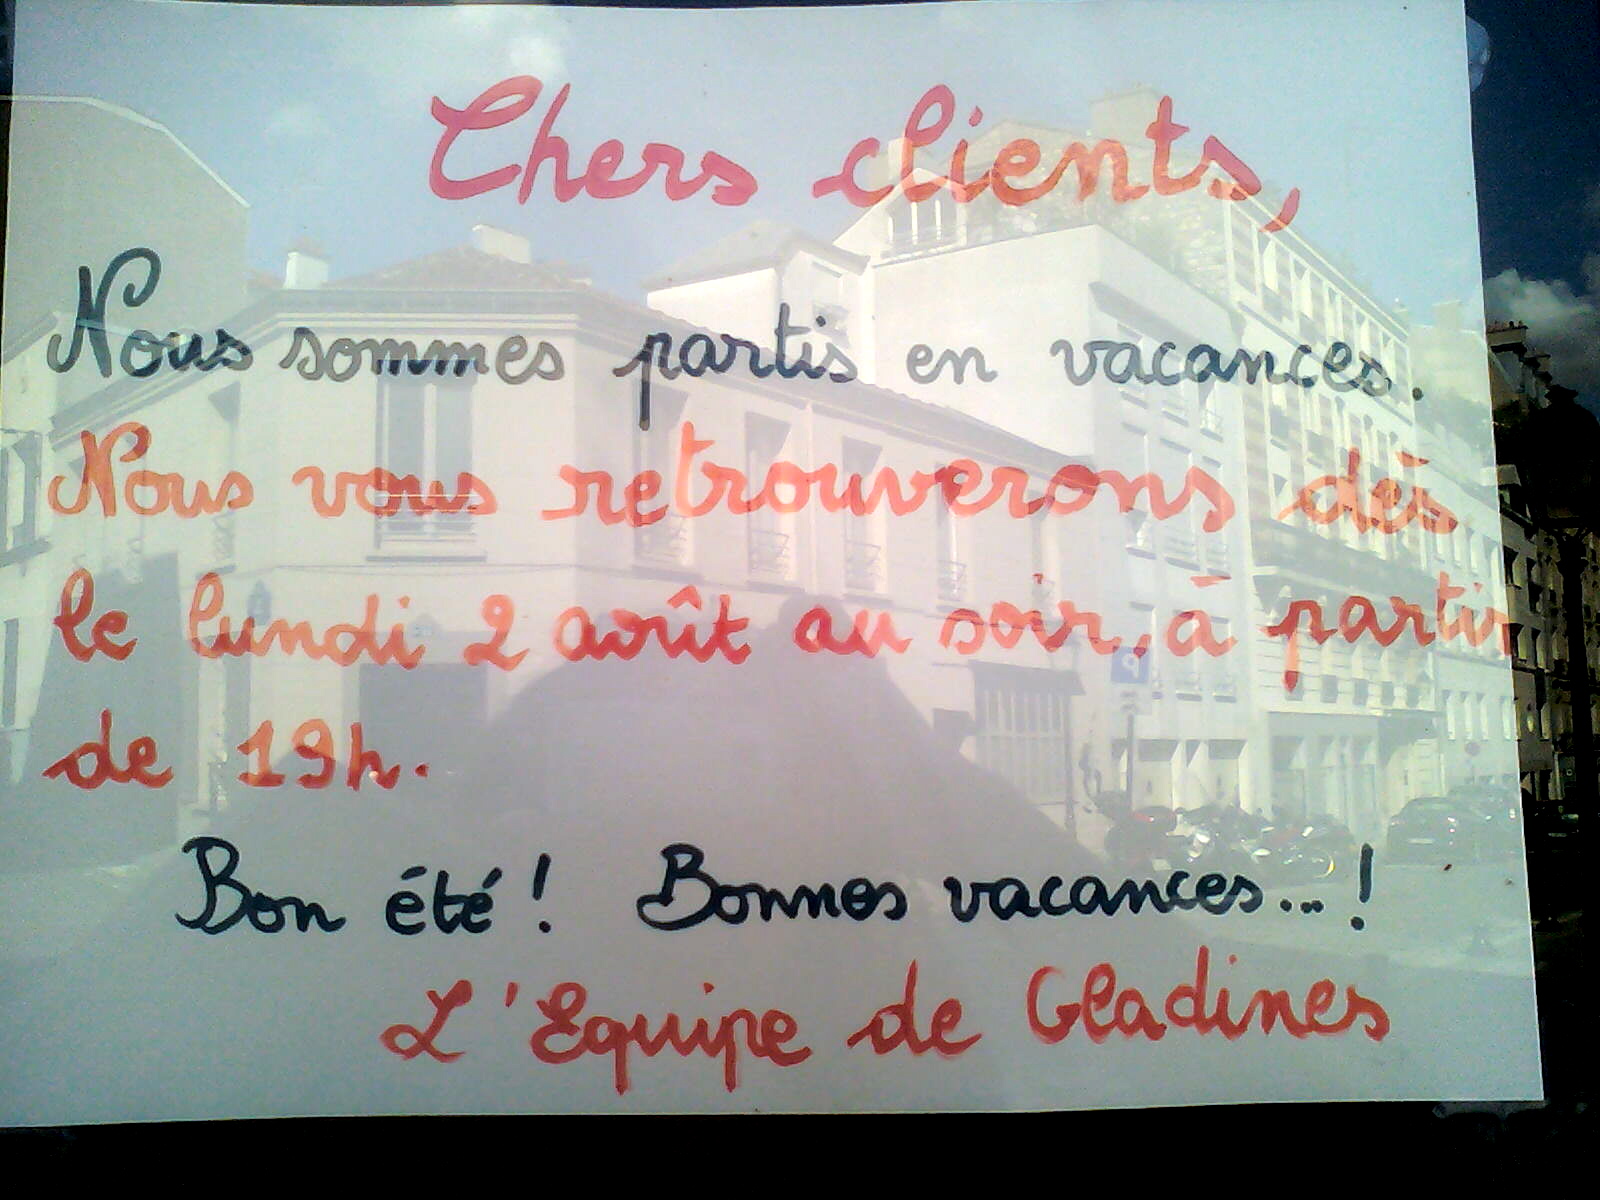 Chers clients,
Nous sommes partis en vacances.
Nous vous retrouverons dès
le lundi 2 août au soir, à partir
de 19h.
Bon été ! Bonnes vacances... !
L'Equipe de Gladines